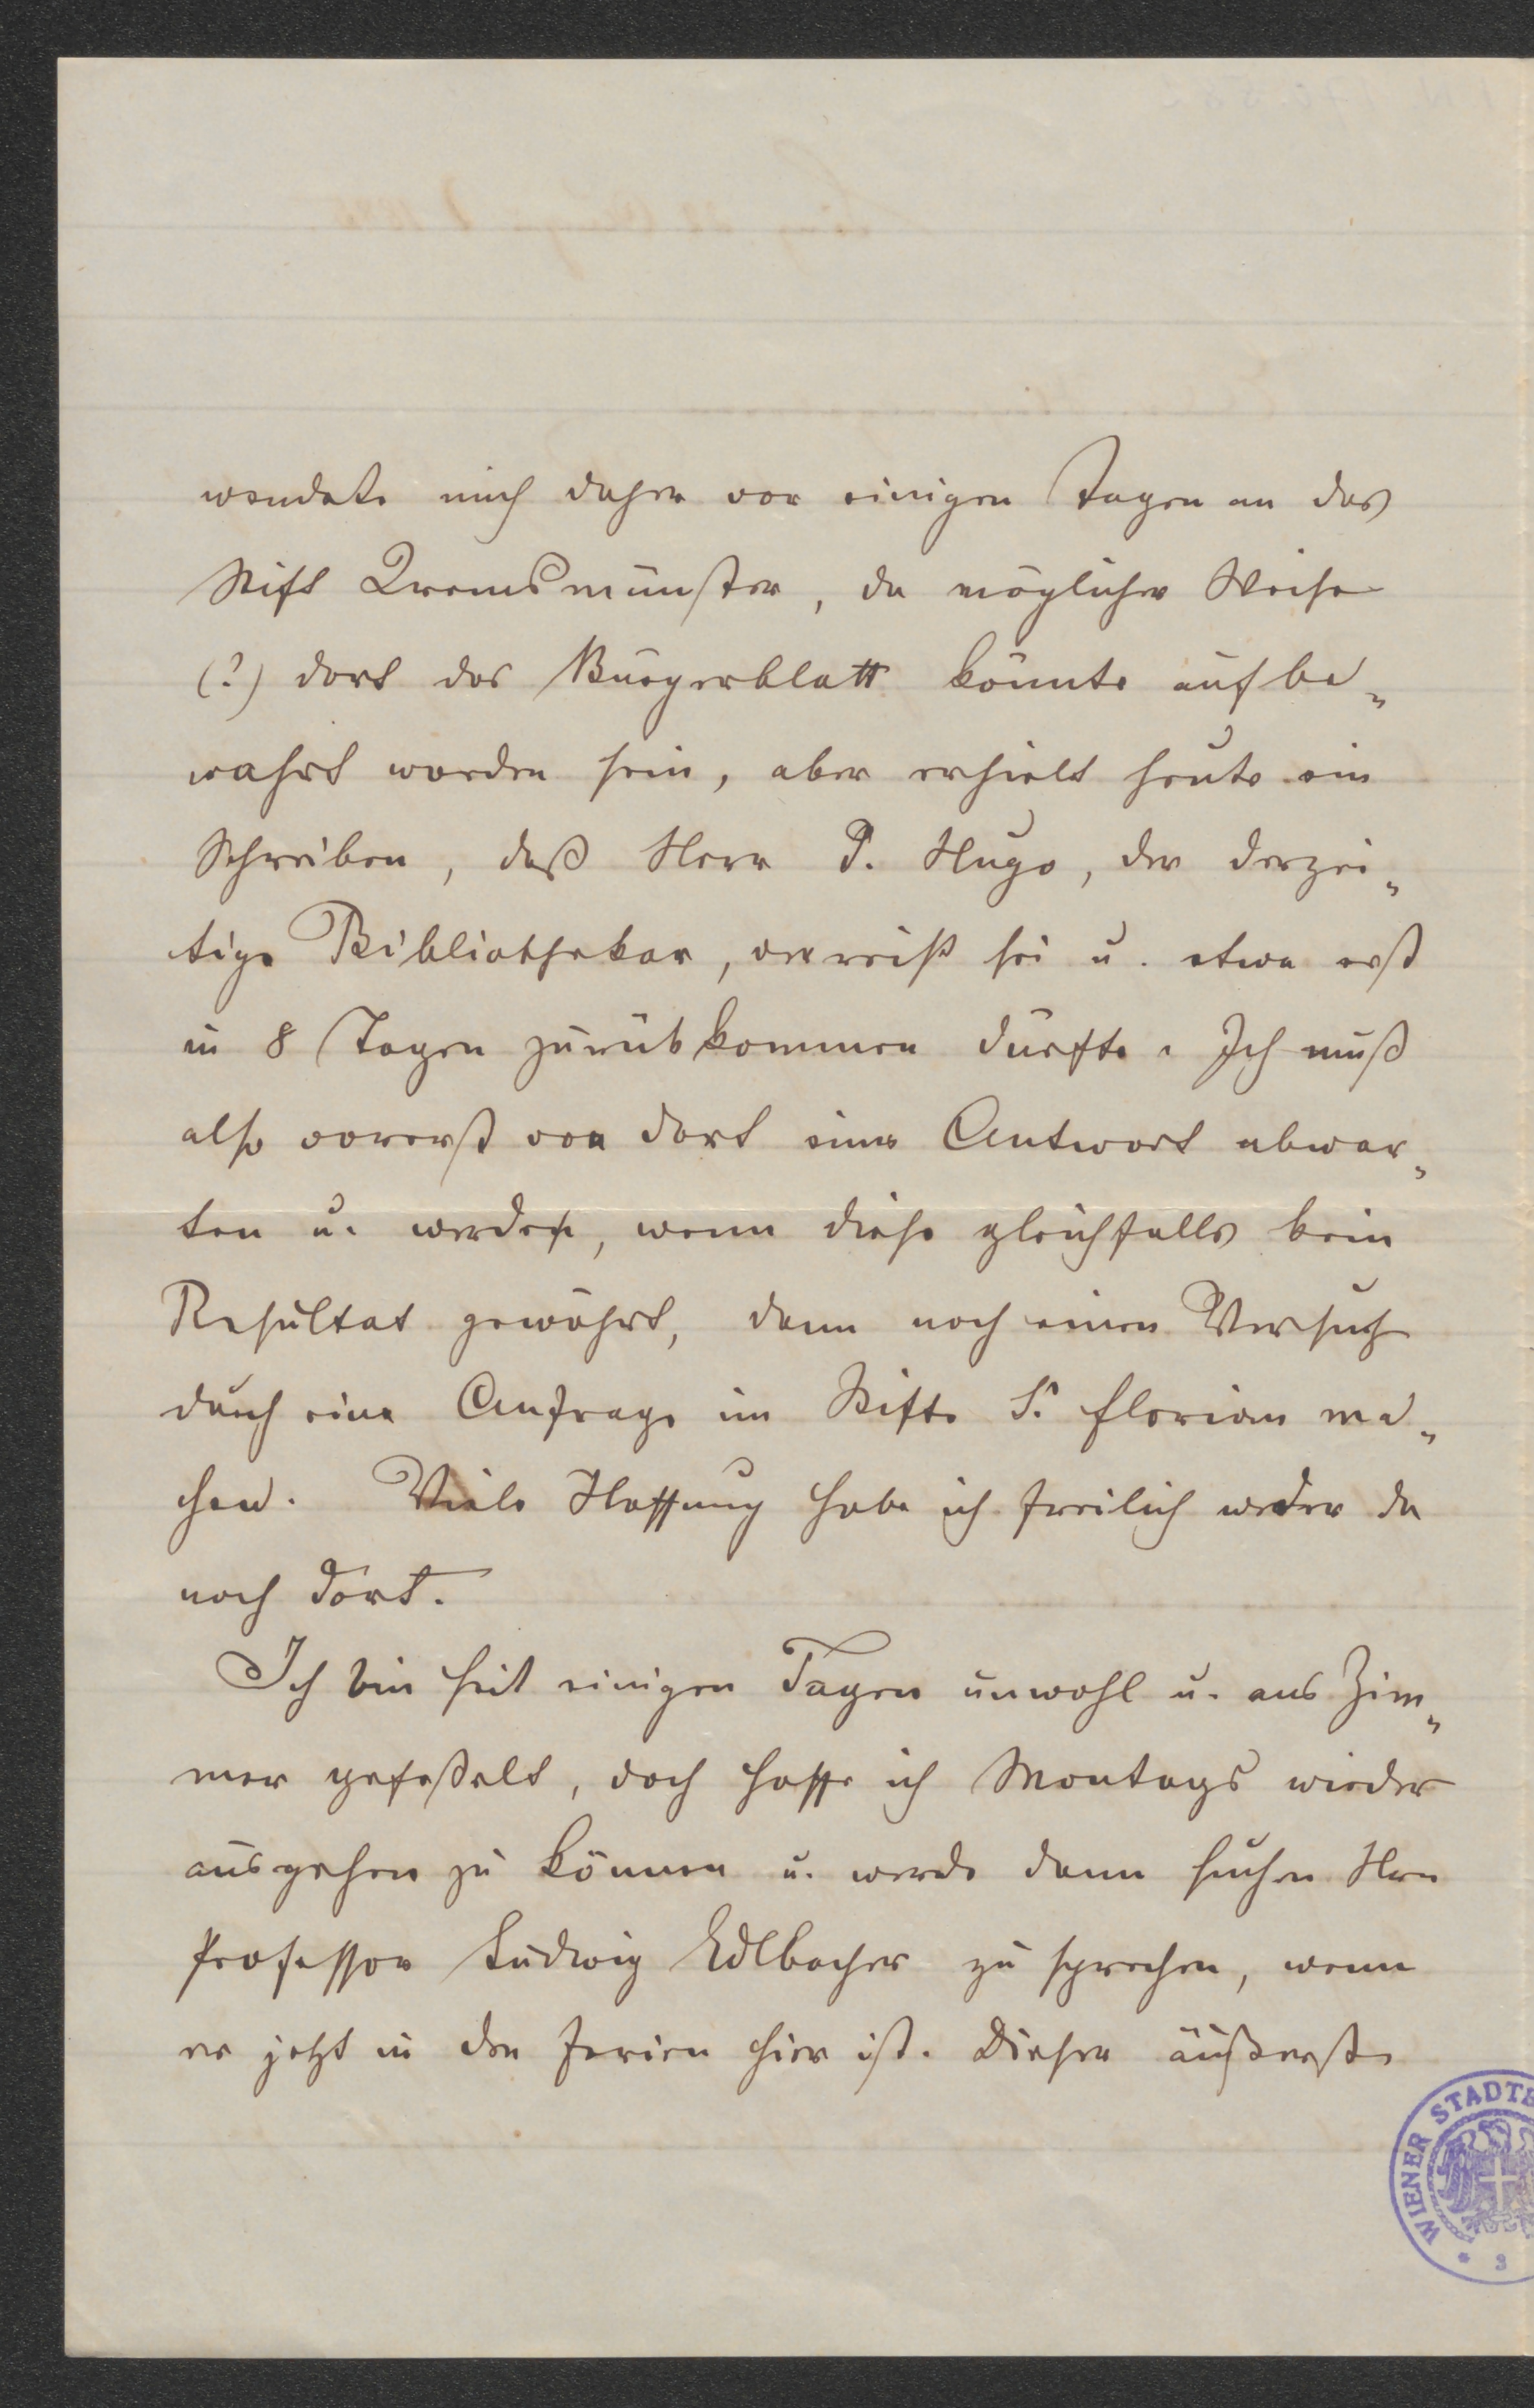 wendete mich daher vor einigen Tagen an das
Stift Kremsmünster, da möglicher Weise
(?) dort das Bürgerblatt könnte aufbe„
wahrt worden sein, aber erhielt heute ein
Schreiben, daß Herr P. Hugo, der derzei„
tige Bibliothekar, verreist sei u. etwa erst
in 8 Tagen zurückkommen dürfte. Ich muß
also vorerst von dort eine Antwort abwar„
ten u. werde, wenn diese gleichfalls kein
Resultat gewährt, dann noch einen Versuch
durch eine Anfrage im Stifte St. Florian ma„
chen. Viele Hoffnung habe ich freilich weder da
noch dort.
Ich bin seit einigen Tagen unwohl u. ans Zim„
mer gefeßelt, doch hoffe ich Montags wieder
ausgehen zu können u. werde dann suchen Hrn
Professor Ludwig Edlbacher zu sprechen, wenn
er jetzt in den Ferien hier ist. Dieser äußerst
WIENER STADTB